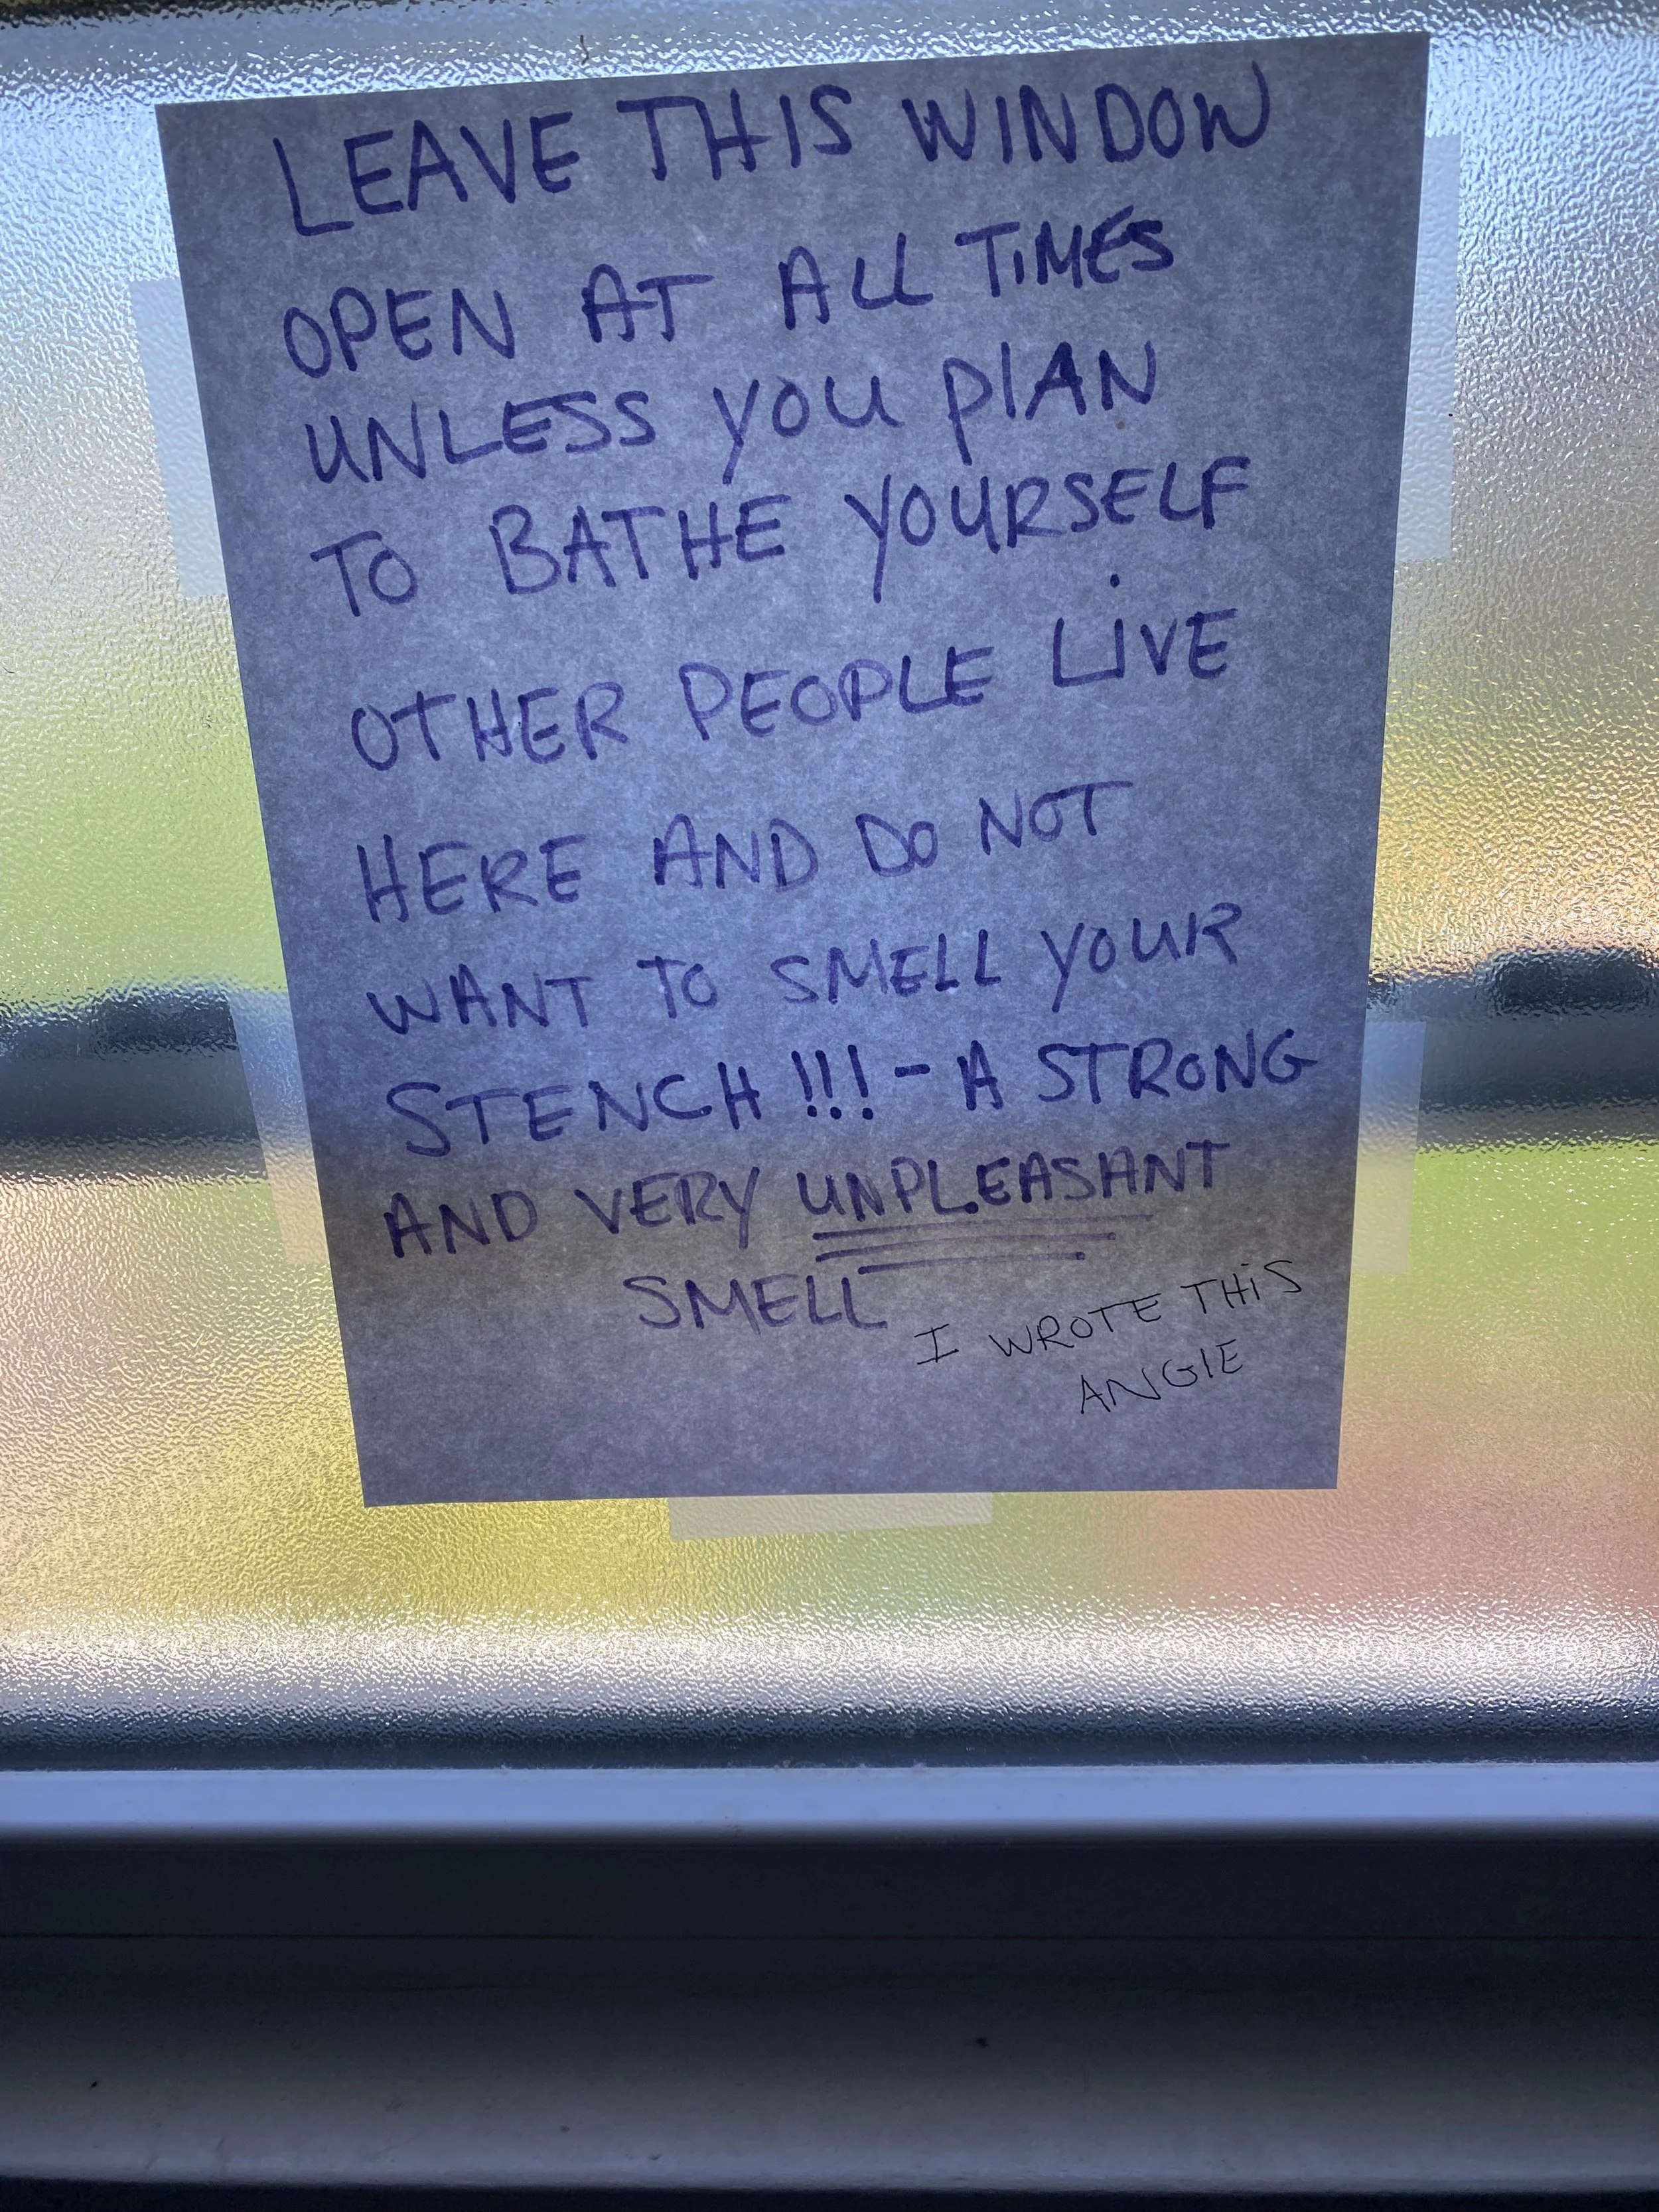 LEAVE THIS WINDOW
OPEN AT ALL TIMES
UNLESS YOU PLAN
TO BATHE YOURSELF
OTHER PEOPLE LIVE
HERE AND DO NOT
WANT TO SMELL YOUR
STENCH !!! - A STRONG
AND VERY UNPLEASANT
SMELL
I WROTE THIS
ANGIE